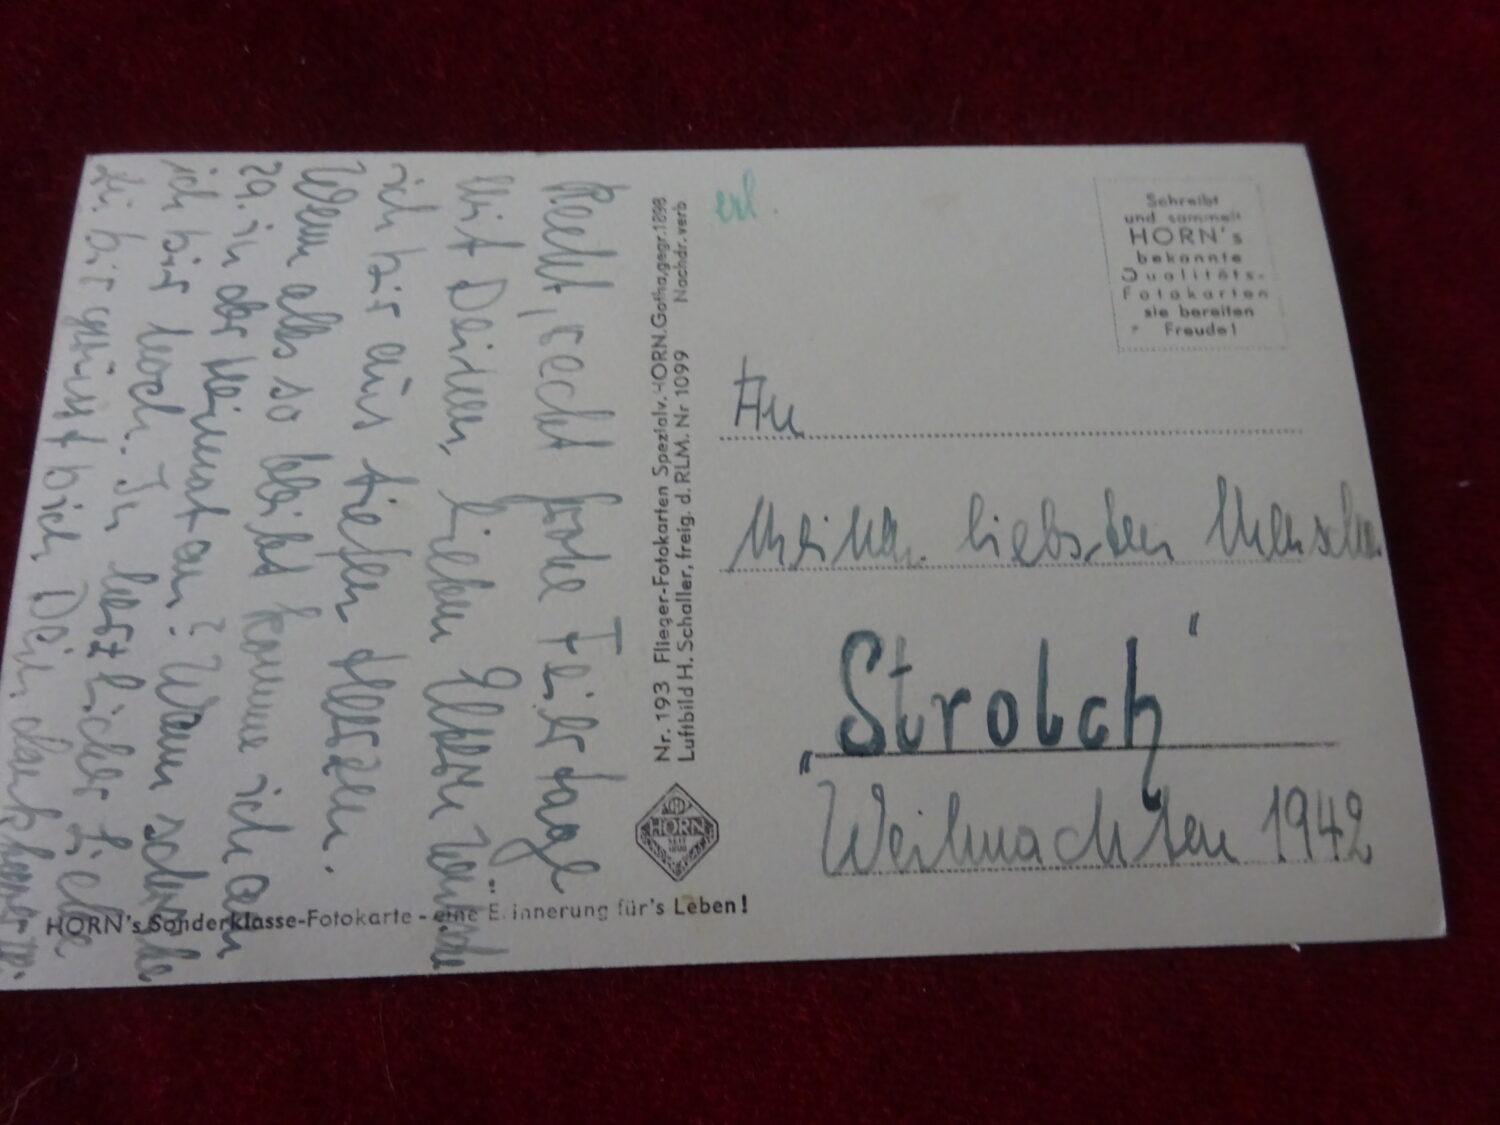 Recht, recht frohe Feiertage
Mit Deinen lieben Eltern wünsche
ich dir aus tiefen Herzen.
Wenn alles so bleibt komme ich am
29. in der Heimat an? Wann schreibe
ich dir noch. In herzlicher Liebe
grüßt dich Dein dankbarer
HORN's Sonderklasse-Fotokarte - eine Erinnerung für's Leben!
Nr. 193 Flieger-Fotokarten Spezialv. HORN, Gotha, gegr. 1898
Luftbild H. Schaller, freig. d. RLM. Nr 1099 Nachdr. verb
HORN
erl.
Schreibt
und sammelt
HORN's
bekannte
Qualitäts-
Fotokarten
sie bereiten
Freude!
An
Meinen liebsten Menschen
„Strolch"
Weihnachten 1942